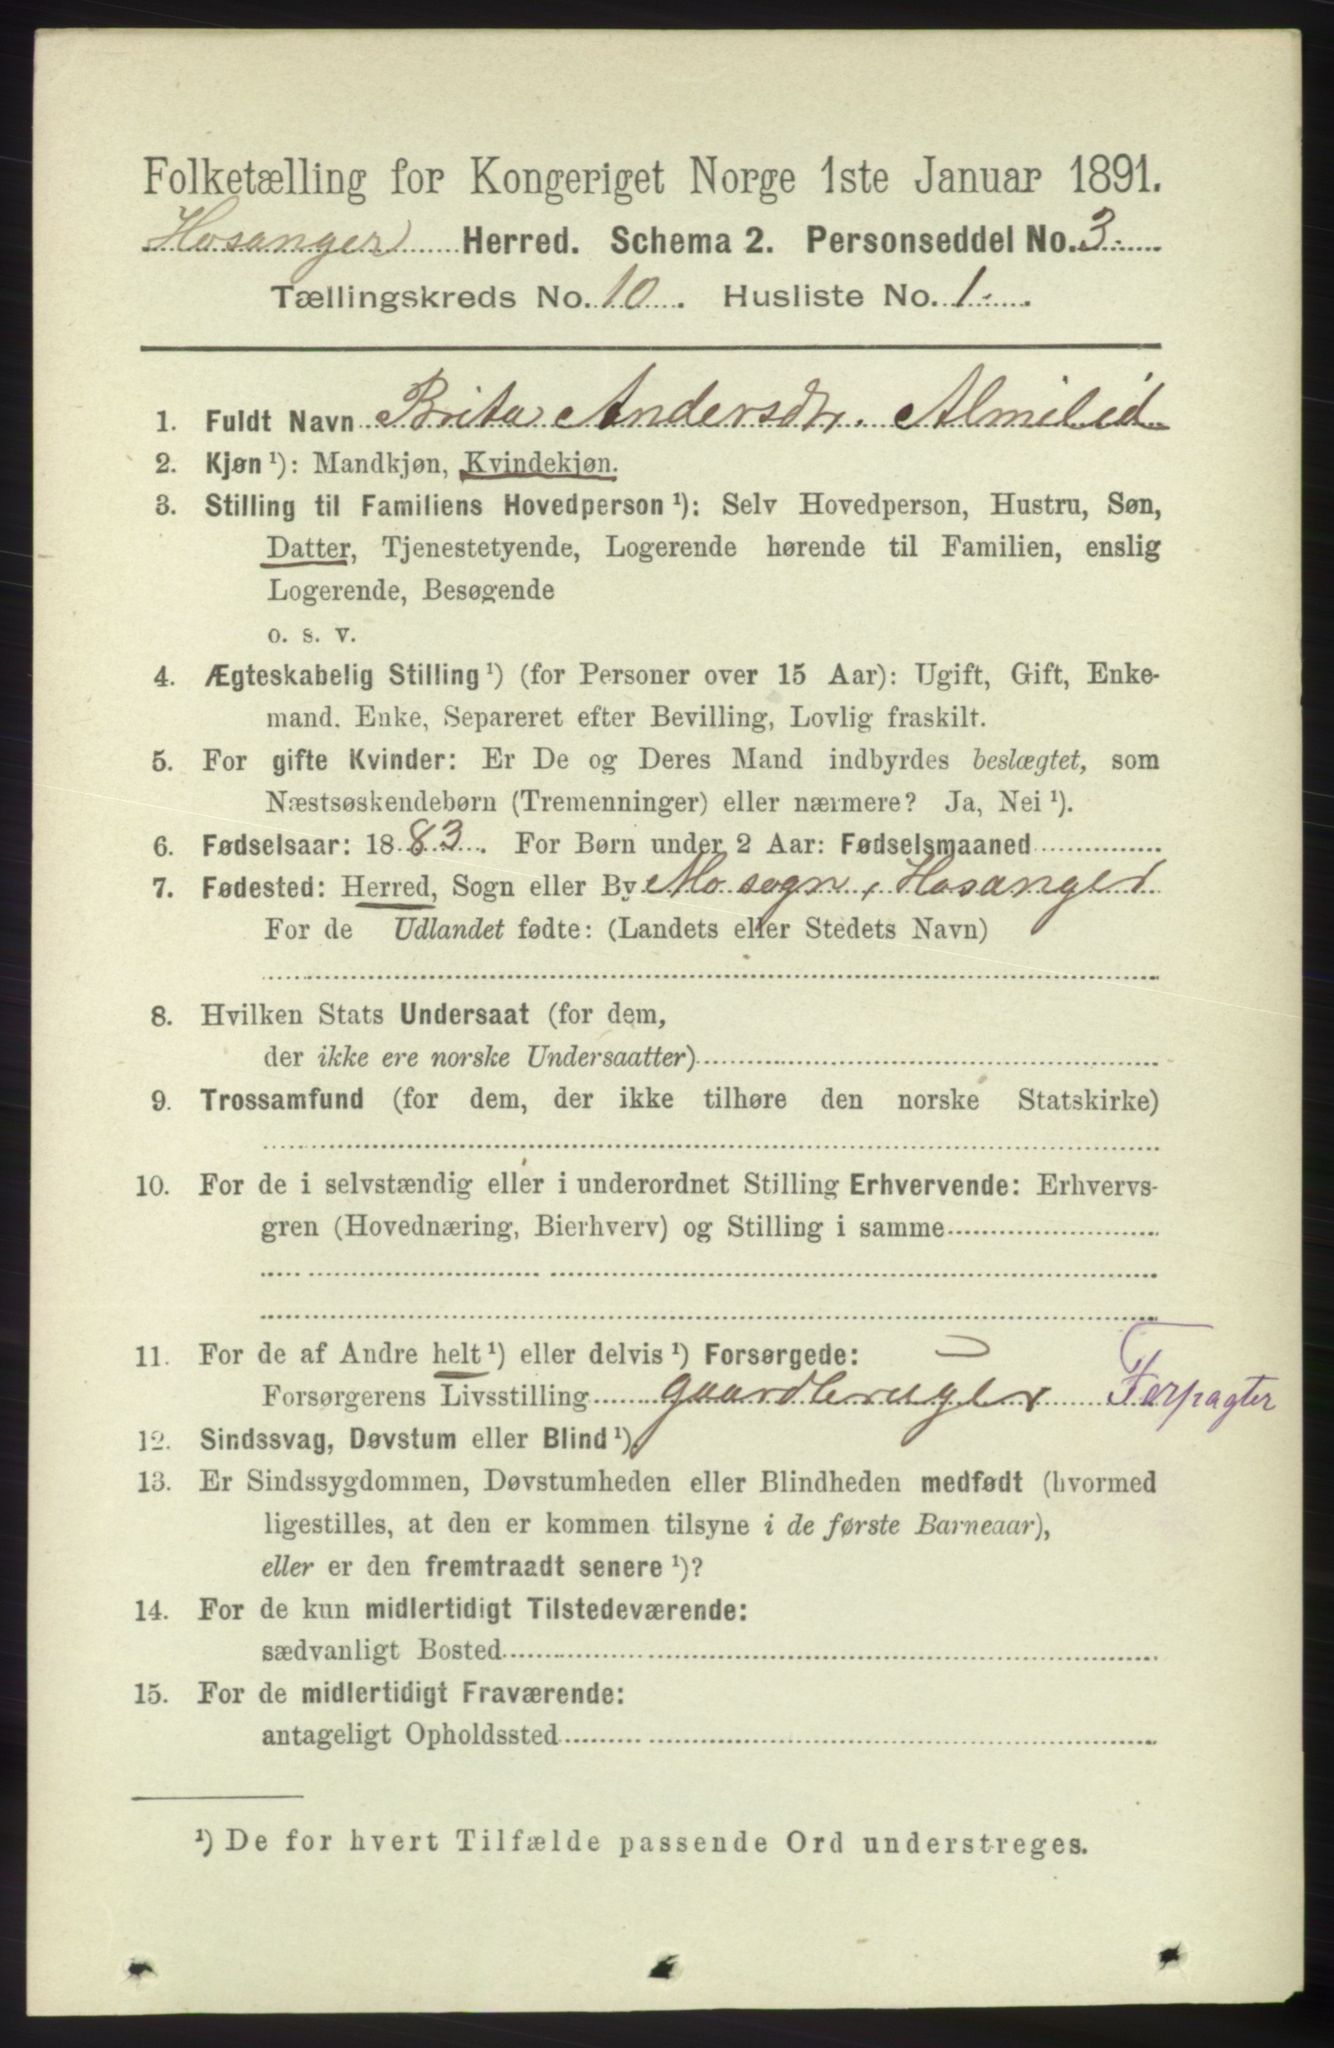 Folketælling for Kongeriget Norge 1ste Januar 1891.
Hosanger Herred. Schema 2. Personseddel No. 3.
Tællingskreds No. 10. Husliste No. 1.
1. Fuldt Navn Brita Andersdtr. Almelid
2. Kjøn ¹): Mandkjøn, Kvindekjøn.
3. Stilling til Familiens Hovedperson ¹): Selv Hovedperson, Hustru, Søn,
Datter, Tjenestetyende, Logerende hørende til Familien, enslig
Logerende, Besøgende
o. s. v.
4. Ægteskabelig Stilling ¹) (for Personer over 15 Aar): Ugift, Gift, Enke-
mand, Enke, Separeret efter Bevilling, Lovlig fraskilt.
5. For gifte Kvinder: Er De og Deres Mand indbyrdes beslægtet, som
Næstsøskendebørn (Tremenninger) eller nærmere? Ja, Nei ¹).
6. Fødselsaar: 1883. For Børn under 2 Aar: Fødselsmaaned
7. Fødested: Herred, Sogn eller By Mo sogn, Hosanger
For de Udlandet fødte: (Landets eller Stedets Navn)
8. Hvilken Stats Undersaat (for dem,
der ikke ere norske Undersaatter)
9. Trossamfund (for dem, der ikke tilhøre den norske Statskirke)
10. For de i selvstændig eller i underordnet Stilling Erhvervende: Erhvervs-
gren (Hovednæring, Bierhverv) og Stilling i samme
11. For de af Andre helt ¹) eller delvis ¹) Forsørgede:
Forsørgerens Livsstilling gaardbruger Forpagter
12. Sindssvag, Døvstum eller Blind ¹).
13. Er Sindssygdommen, Døvstumheden eller Blindheden medfødt (hvormed
ligestilles, at den er kommen tilsyne i de første Barneaar),
eller er den fremtraadt senere ¹)?
14. For de kun midlertidigt Tilstedeværende:
sædvanligt Bosted
15. For de midlertidigt Fraværende:
antageligt Opholdssted
¹) De for hvert Tilfælde passende Ord understreges.